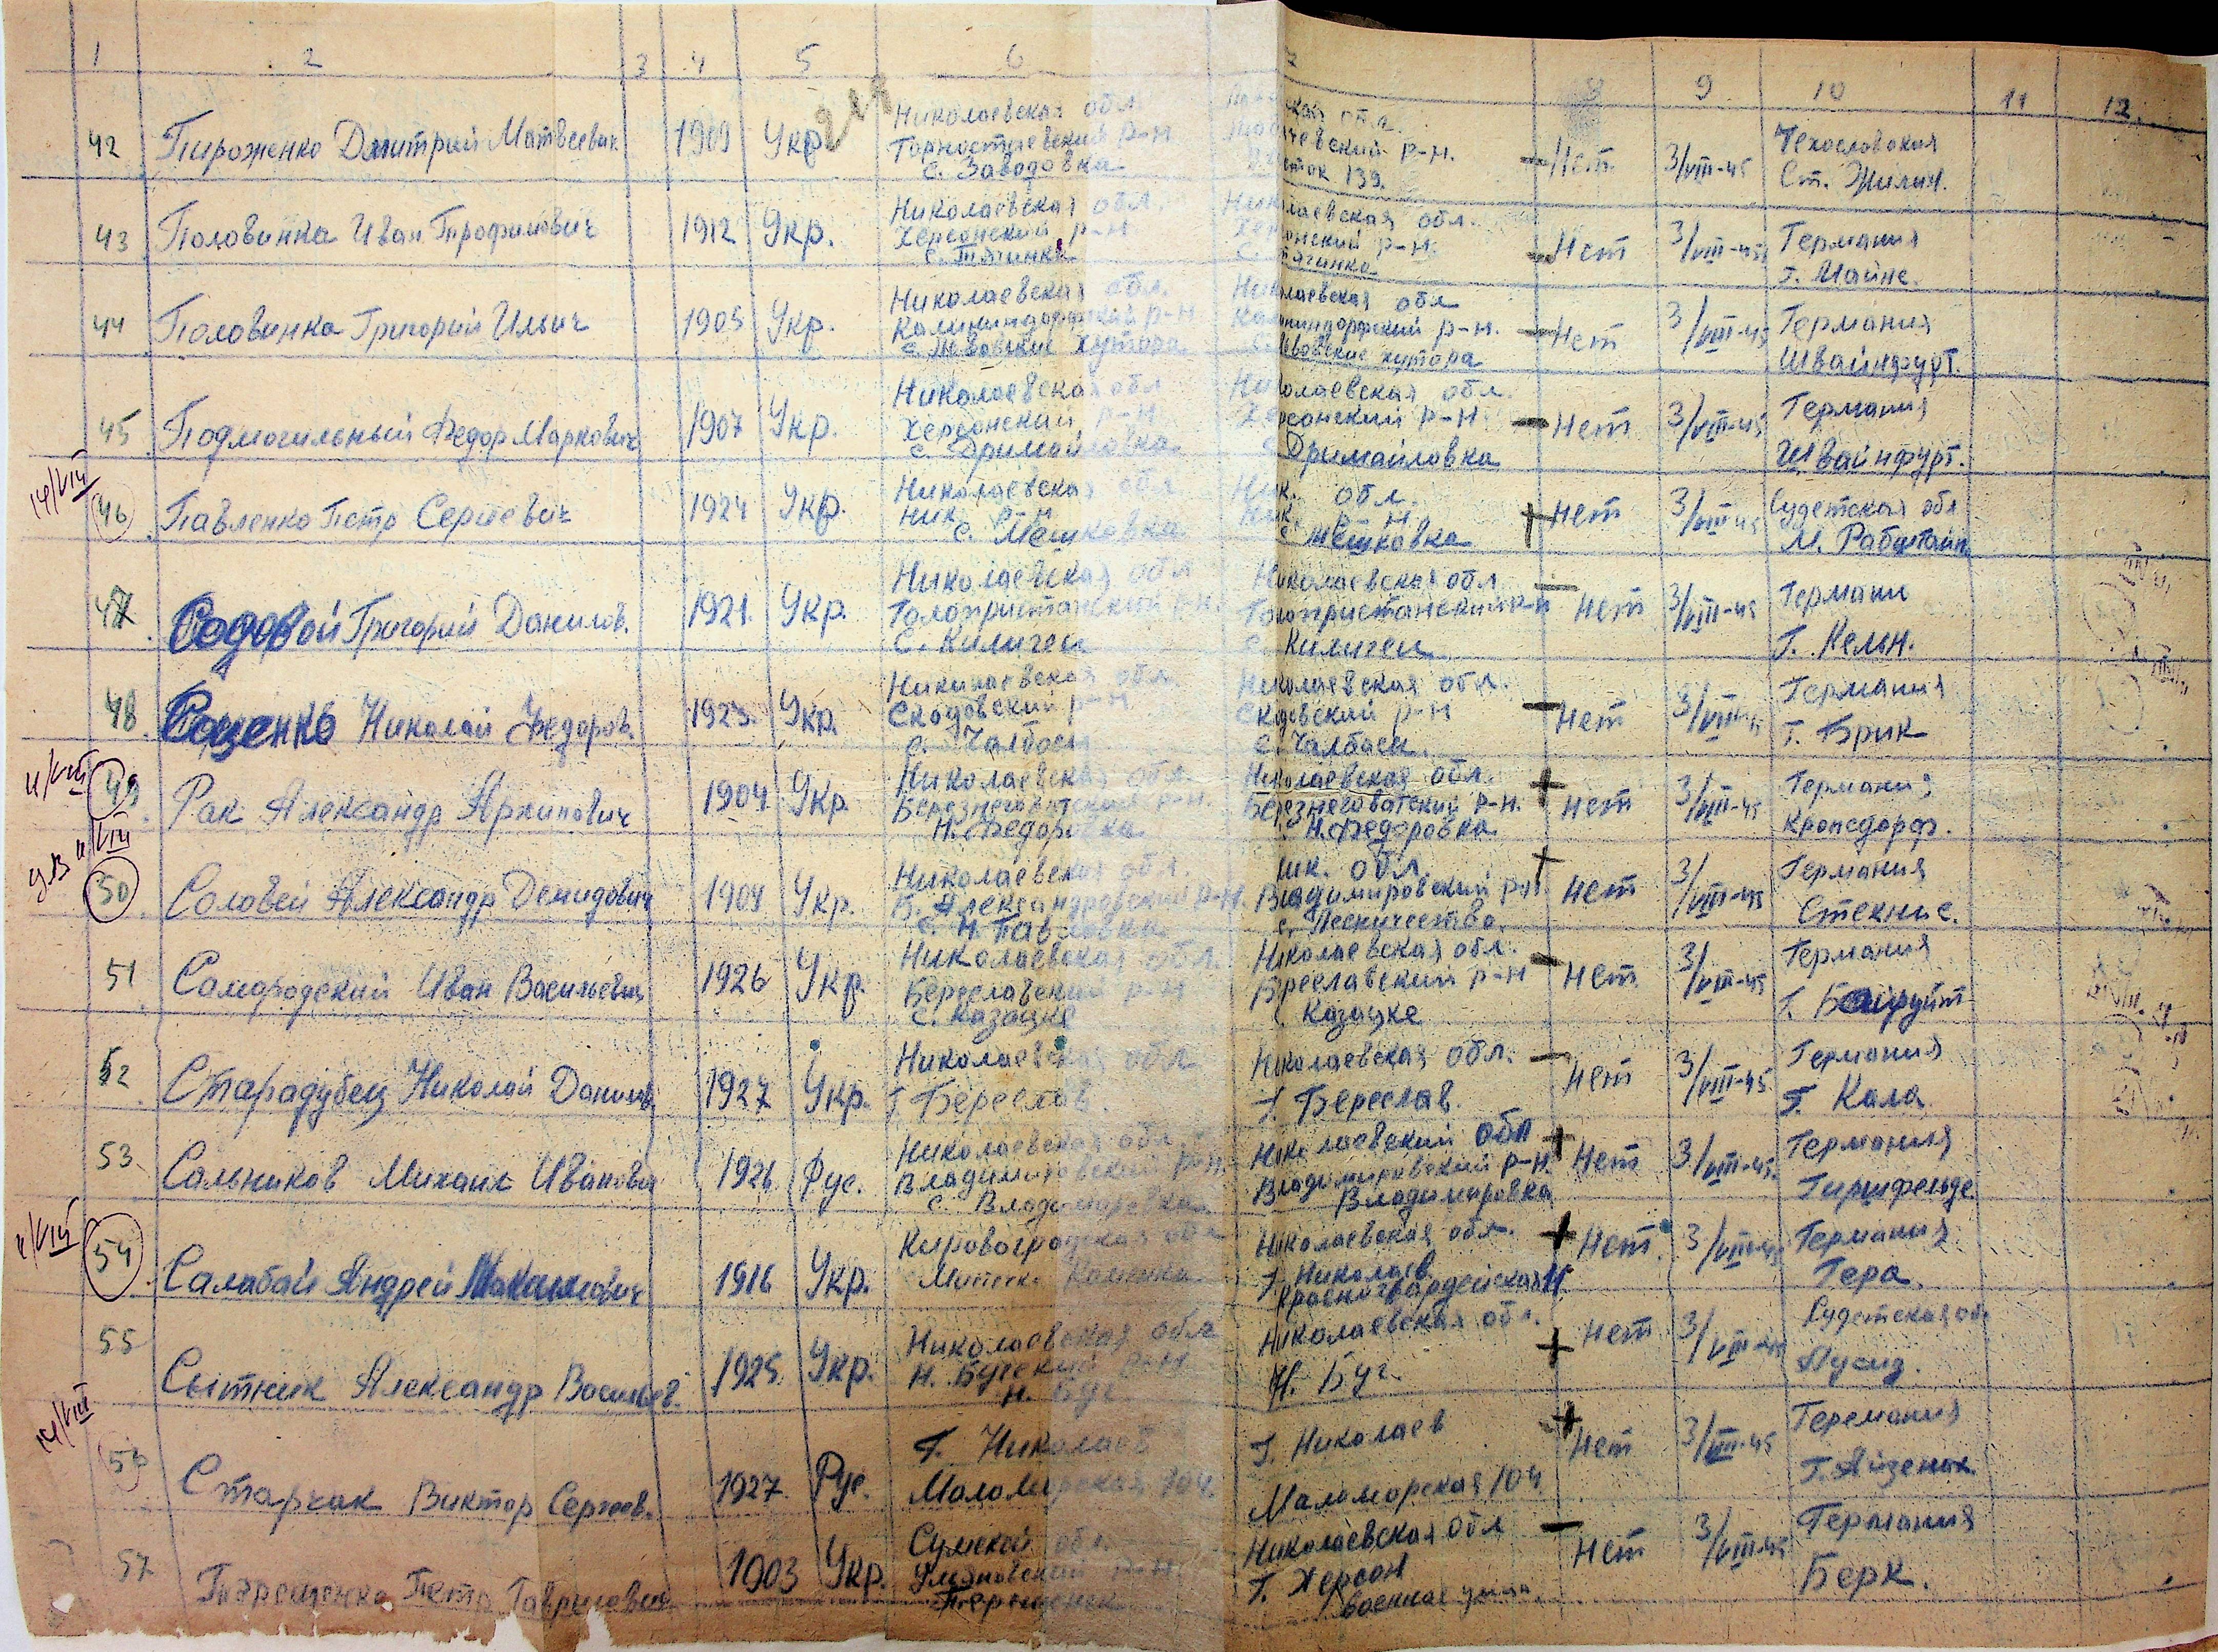 1 2 3 4 5 6 7 8 9 10 11 12.
42 Пироженко Дмитрий Матвеевич 1909 Укр. Николаевская обл. обл. Нет 3/VIII-45 Чехословакия
Горностаевский р-н р-н. Ст. Жилин.
с. Заводовка 139.
43 Половинка Иван Трофимович 1912 Укр. Николаевская обл. Николаевская обл. Нет 3/VIII-45 Германия
Херсонский р-н Херсонский р-н. Г. Майнс.
с. Тягинка с. Тягинка
44 Половинка Григорий Ильич 1905 Укр. Николаевская обл. Николаевская обл Нет 3/VIII-45 Германия
Калининдорфский р-н Калининдорфский р-н. Швайнфурт.
с. Львовские хутора с. Львовские хутора
45 Подмогильный Федор Маркович 1907 Укр. Николаевская обл Николаевская обл. Нет 3/VIII-45 Германия
Херсонский р-н Херсонский р-н Швайнфурт.
с. Дримайловка с. Дримайловка
14/VIII
46 Павленко Петр Сергеевич 1924 Укр. Николаевская обл Ник. обл. + Нет 3/VIII-45 Судетская обл
Ник. р-н Ник. р-н М. Рабштайн
с. Мешковка с. Мешковка
47 Садовой Григорий Данилов. 1921. Укр. Николаевская обл Николаевская обл Нет 3/VIII-45 Германи
Голопристанский р-н. Голопристанский р-н Г. Кельн.
с. Киличеи с. Киличеи
48. Сащенко Николай Федоров. 1923. Укр. Николаевская обл. Николаевская обл. Нет 3/VIII-45 Германия
Скадовский р-н Скадовский р-н Г. Брик
с. Чалбасы с. Чалбасы.
11/VIII
49. Рак Александр Архипович 1904 Укр Николаевская обл. Николаевская обл. + Нет 3/VIII-45 Германия
Березнеговатский р-н Березнеговатский р-н. Кронсдорф.
Н. Федоровка Н. Федоровка
11/VIII
50. Соловей Александр Демидович 1904 Укр. Николаевская обл. Ник. обл. + Нет 3/VIII-45 Германия
Б. Александровский р-н. Владимировский р-н. Стекние.
с. Н. Павловка с. Лесничество.
51. Самородский Иван Васильевич 1926 Укр. Николаевская обл. Николаевская обл. Нет 3/VIII-45 Германия
Береславский р-н Береславский р-н Г. Байруйт
с. Казацке с. Казацке
52 Старадубец Николай Данилов. 1927 Укр. Николаевская обл Николаевская обл. Нет 3/VIII-45 Германия
Г. Береслав. Г. Береслав. Г. Кала
53 Сальников Михаил Иванович 1926 Рус. Николаевская обл. Николаевский обл + Нет 3/VIII-45. Германия
Владимировский р-н. Владимировский р-н. Гиршфельде
с. Владимировка Владимировка
11/VIII
54 Салабай Андрей Максимович 1916 Укр. Кировоградская обл Николаевская обл. + Нет. 3/VIII-45 Германия
Каменка Г. Николаев Гера.
Красногвардейская
55 Сытник Александр Васильев. 1925. Укр. Николаевская обл Николаевская обл. + Нет 3/VIII-45 Судетская об.
Н. Бугский р-н Н. Буг.
Н. Буг
14/VIII
56 Старчак Виктор Сергеев. 1927. Рус. Г. Николаев Г. Николаев + Нет 3/VIII-45 Геремания
Маломорская 104. Маломорская 104
57 Терещенко Петр Гаврилович 1903 Укр. Сумской обл. Николаевская обл Нет 3/VIII-45 Германия
р-н. Г. Херсон Берк.